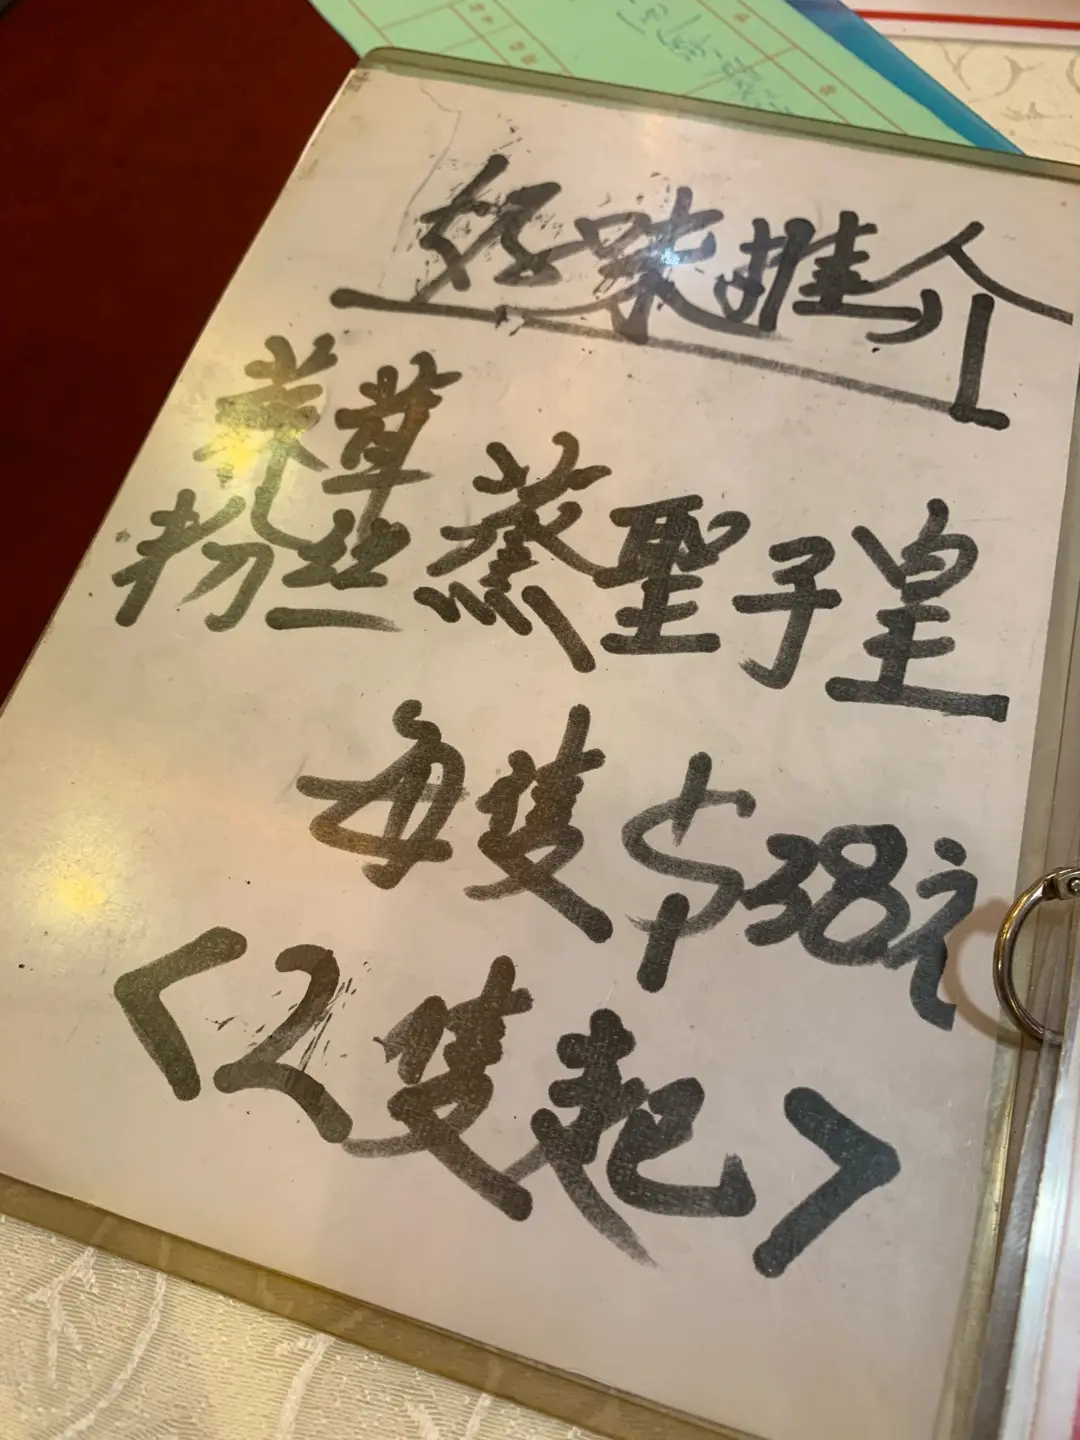 好味推介
蒜茸
粉丝蒸聖子皇
每隻$38元
<2隻起>